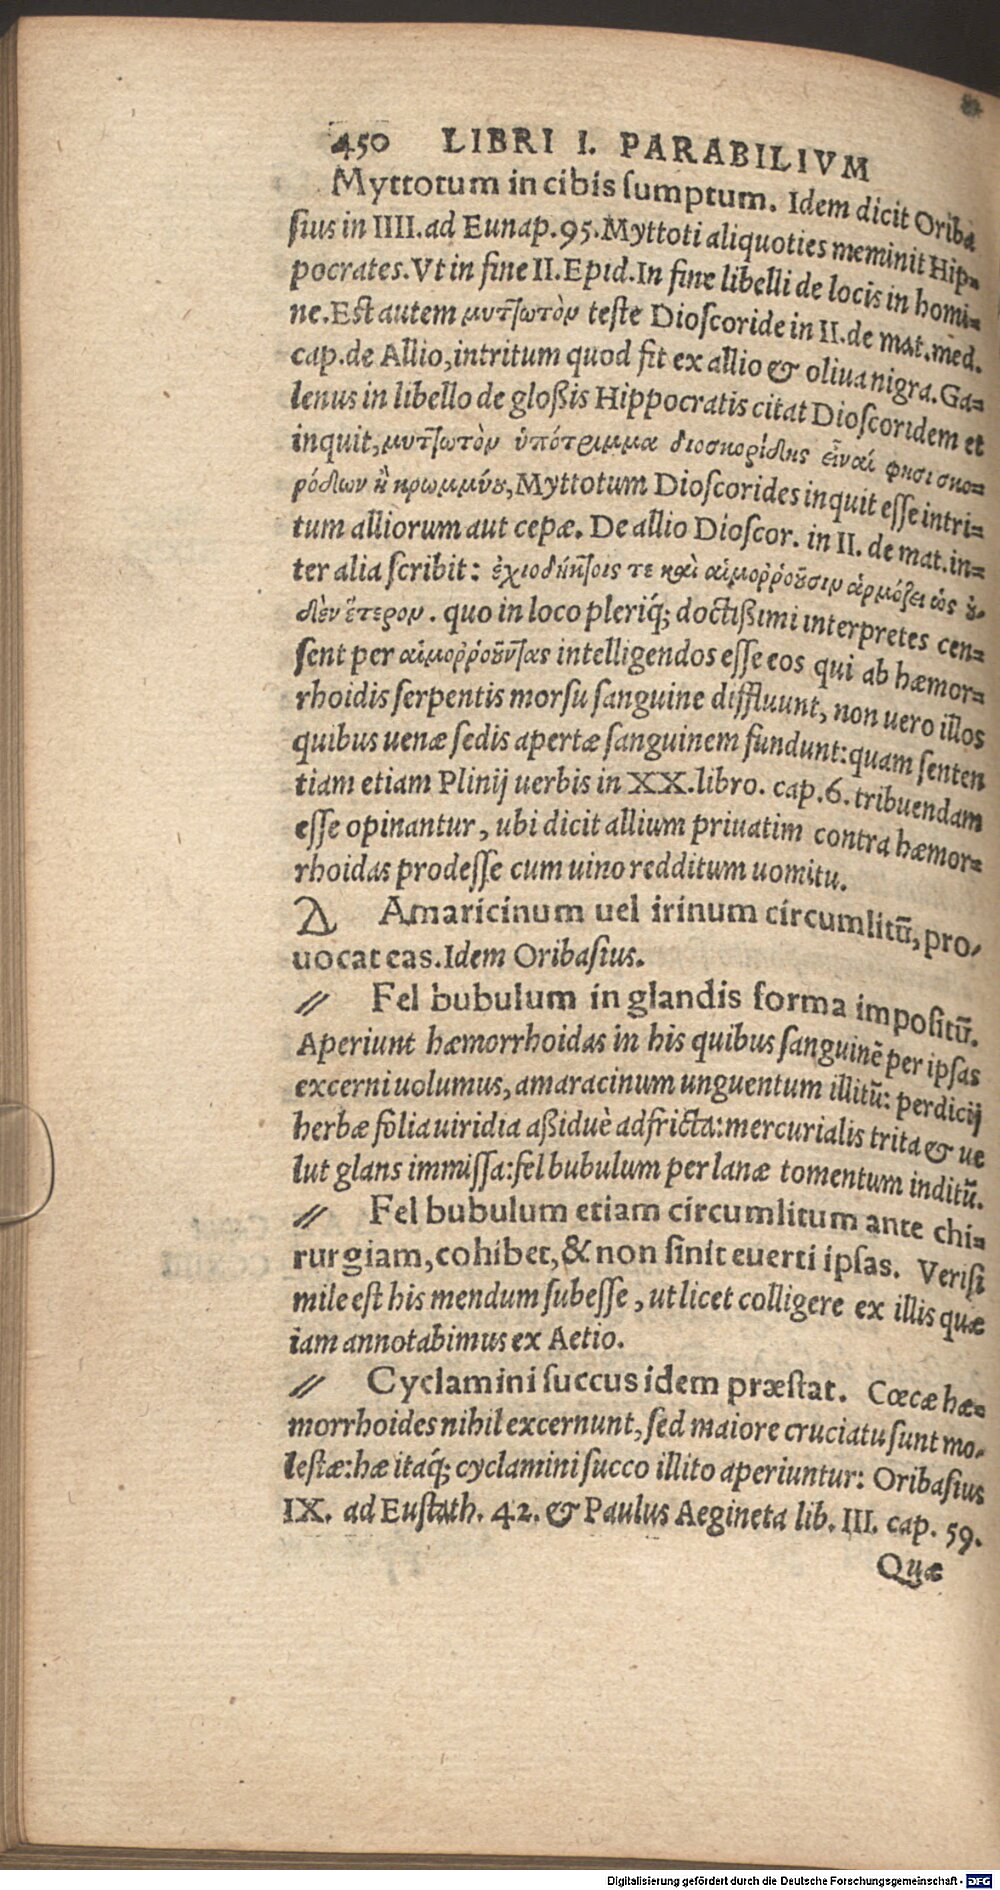 450 LIBRI I. PARABILIVM
Myttotum in cibis sumptum. Idem dicit Oriba
sius in IIII. ad Eunap. 95. Myttoti aliquoties meminit Hip=
pocrates. Vt in fine II. Epid. In fine libelli de locis in homi=
ne. Est autem μυττωτὸν teste Dioscoride in II. de mat. med.
cap. de Allio, intritum quod fit ex allio & oliua nigra. Ga=
lenus in libello de glossis Hippocratis citat Dioscoridem et
inquit, μυττωτὸν ὑπότριμμα διοσκορίδης εἶναί φησι σκο=
ρόδων ἢ κρομμύου, Myttotum Dioscorides inquit esse intri=
tum alliorum aut cepæ. De allio Dioscor. in II. de mat. in=
ter alia scribit: ἐχιοδήκτοις τε καὶ αἱμοῤῥοοῦσιν ἁρμόζει ὡς ὐ-
δὲν ἕτερον. quo in loco pleriq́; doctissimi interpretes cen=
sent per αἱμοῤῥοοῦντας intelligendos esse eos qui ab hæmor=
rhoidis serpentis morsu sanguine diffluunt, non uero illos
quibus uenæ sedis apertæ sanguinem fundunt: quam senten
tiam etiam Plinij uerbis in XX. libro. cap. 6. tribuendam
esse opinantur, ubi dicit allium priuatim contra hæmor=
rhoidas prodesse cum uino redditum uomitu.
Amaricinum uel irinum circumlitū, pro-
uocat eas. Idem Oribasius.
// Fel bubulum in glandis forma impositū.
Aperiunt hæmorrhoidas in his quibus sanguinē per ipsas
excerni uolumus, amaracinum unguentum illitū: perdicij
herbæ folia uiridia assiduè adfricta: mercurialis trita & ue
lut glans immissa: fel bubulum per lanæ tomentum inditū.
// Fel bubulum etiam circumlitum ante chi=
rurgiam, cohibet, & non sinit euerti ipsas. Verisi
mile est his mendum subesse, ut licet colligere ex illis quæ
iam annotabimus ex Aetio.
// Cyclamini succus idem præstat. Cœcæ hæ=
morrhoides nihil excernunt, sed maiore cruciatu sunt mo-
lestæ: hæ itaq́; cyclamini succo illito aperiuntur: Oribasius
IX. ad Eustath. 42. & Paulus Aegineta lib. III. cap. 59.
Quæ
Digitalisierung gefördert durch die Deutsche Forschungsgemeinschaft - DFG